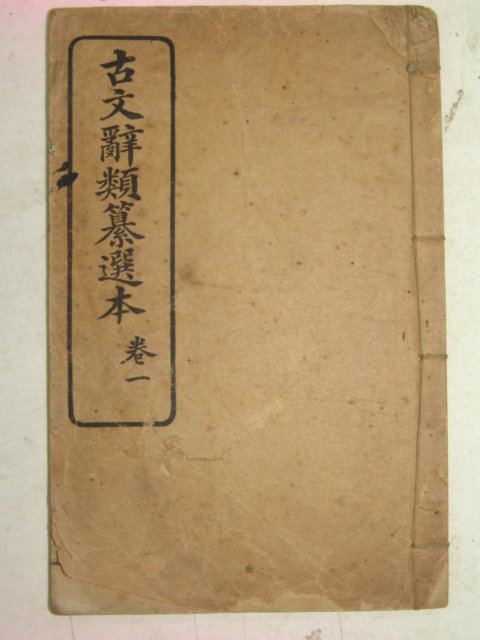 古文辭類纂選本
卷一